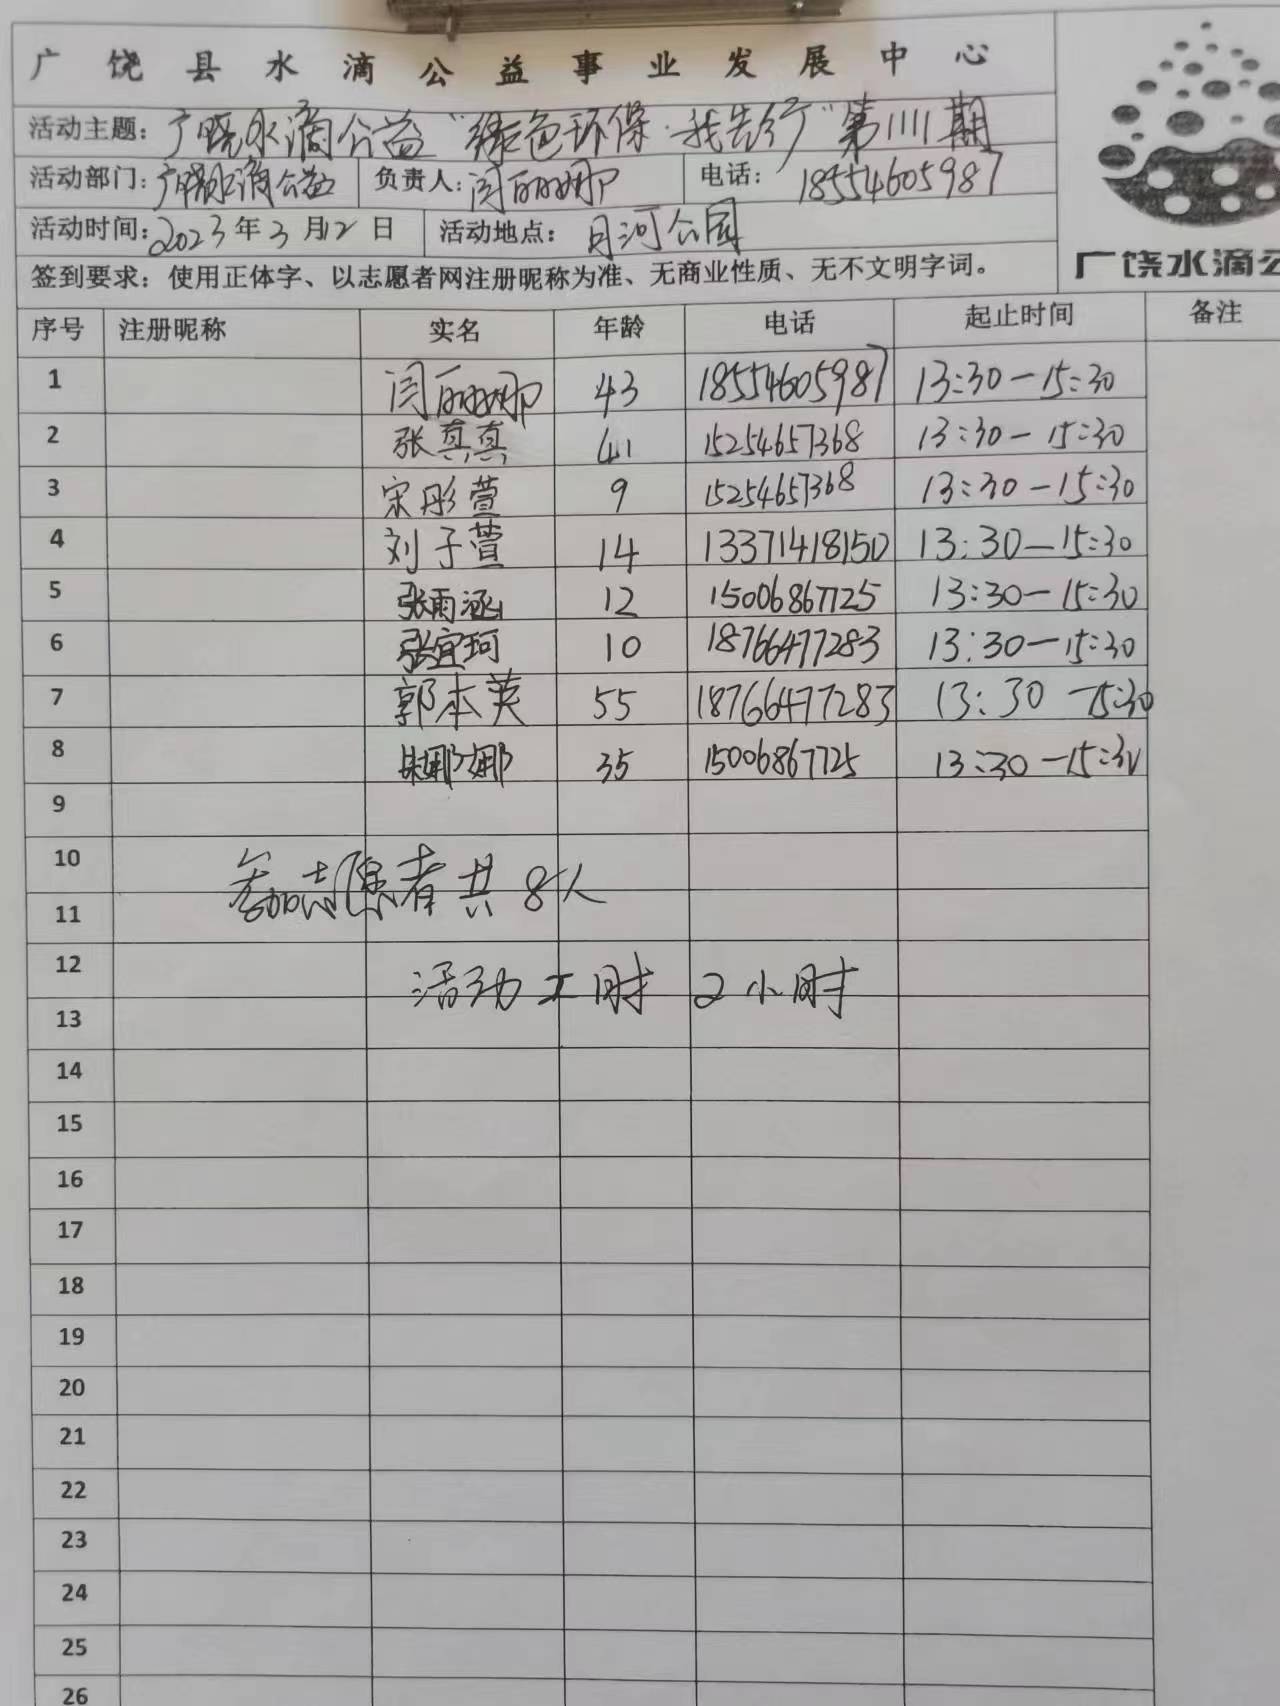 广饶县水滴公益事业发展中心
活动主题：广饶水滴公益“绿色环保·我先行”第1111期
活动部门：广饶水滴公益 负责人：闫丽娜 电话：18554605987
活动时间：2023年3月12日 活动地点：月河公园
签到要求：使用正体字、以志愿者网注册昵称为准、无商业性质、无不文明字词。
广饶水滴公
序号 注册昵称 实名 年龄 电话 起止时间 备注
1 闫丽娜 43 18554605987 13:30-15:30
2 张真真 41 15254657368 13:30-15:30
3 宋彤萱 9 15254657368 13:30-15:30
4 刘子萱 14 13371418150 13:30-15:30
5 张雨涵 12 15006867725 13:30-15:30
6 张宜珂 10 18766477283 13:30-15:30
7 郭本英 55 18766477283 13:30-15:30
8 娜娜 35 15006867725 13:30-15:30
9
10
参加志愿者共8人
11
12
活动工时 2小时
13
14
15
16
17
18
19
20
21
22
23
24
25
26